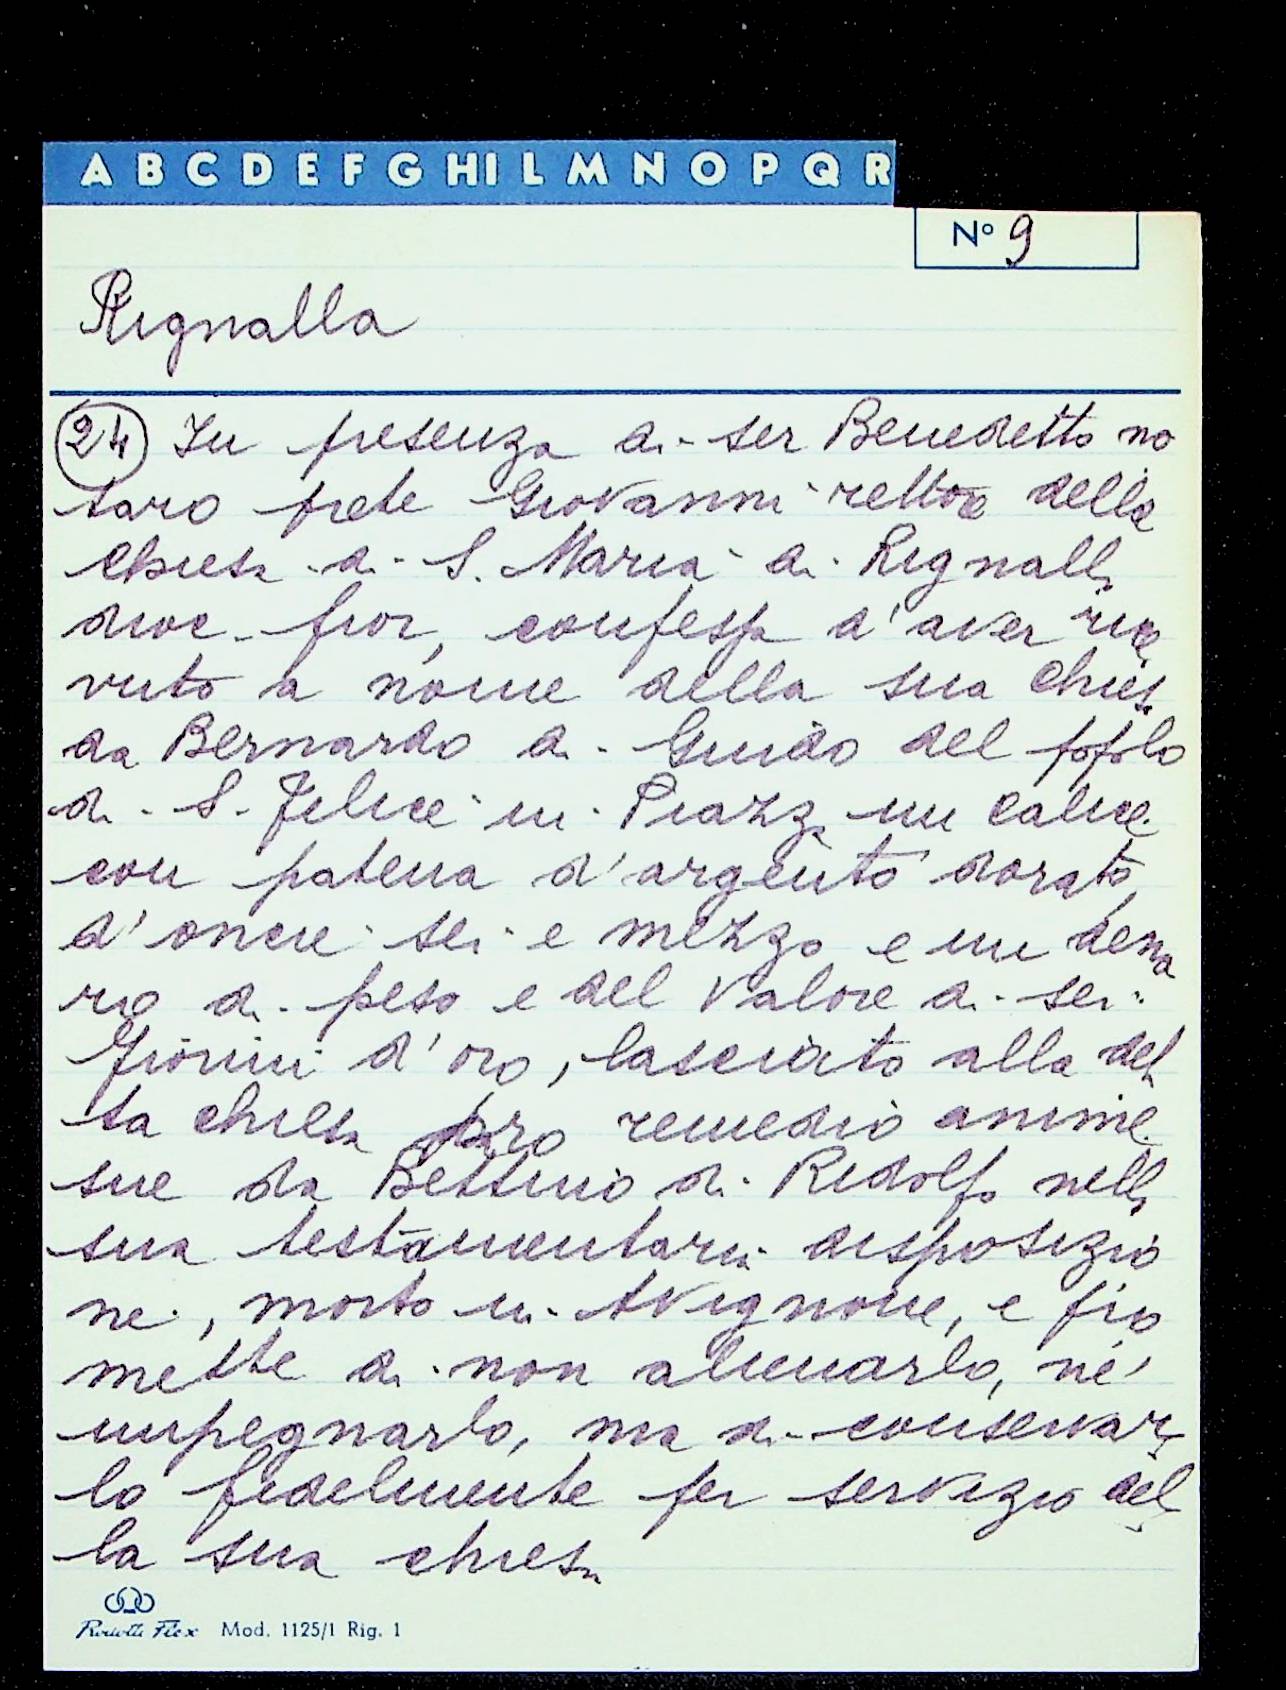 A B C D E F G HI L M N O P Q R
N° 9
Rignalla
24 In presenza di ser Benedetto no
taro prete Giovanni rettore della
chiesa di S. Maria di Rignalla
dioc. fior, confessa d'aver rice
vuto a nome della sua chiesa
da Bernardo di Guido del popolo
di S. Felice in Piazza un calice
con patena d'argento dorato,
d'oncie sei e mezzo e un dena
ro di peso e del valore di sei
fiorini d'oro, lasciato alla det
ta chiesa pro remedio anime
sue da Bettino di Ridolfo nella
sua testamentaria disposizio
ne, morto in Avignone, e pro
mette di non alienarlo, né
impegnarlo, ma di conservar
lo fidelmente per servizio del
la sua chiesa
Flex Mod. 1125/1 Rig. 1